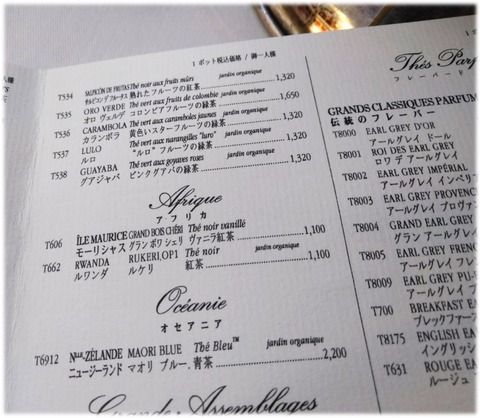 1 ポット税込価格 / 御一人様
T534 SALPICÓN DE FRUTAS Thé noir aux fruits mûrs jardin organique
サルピコン デ フルータス 熟れたフルーツの紅茶 1,320
T535 ORO VERDE Thé vert aux fruits de colombie jardin organique
オロ ヴェルデ コロンビアフルーツの緑茶 1,650
T536 CARAMBOLA Thé vert aux caramboles jaunes jardin organique
カランボラ 黄色いスターフルーツの緑茶 1,320
T537 LULO Thé vert aux narangilles "luro" jardin organique
ルロ "ルロ" フルーツの緑茶 1,320
T538 GUAYABA Thé vert aux goyaves roses jardin organique
グアジャバ ピンクグアバの緑茶 1,320
Afrique
アフリカ
T606 ÎLE MAURICE GRAND BOIS CHÉRI Thé noir vanillé
モーリシャス グラン ボワ シェリ ヴァニラ紅茶 1,100
T662 RWANDA RUKERI,OP1 Thé noir jardin organique
ルワンダ ルケリ 紅茶 1,100
Océanie
オセアニア
T6912 Nlle-ZÉLANDE MAORI BLUE Thé Bleu™ jardin organique
ニュージーランド マオリ ブルー 青茶 2,200
Grands Assemblages
Thés Parf
フレーバード
GRANDS CLASSIQUES PARFUM
伝統のフレーバー
T8000 EARL GREY D'OR
アールグレイ ドール
T8001 ROI DES EARL GREY
ロワ デ アールグレイ
T8002 EARL GREY IMPÉRIAL
アールグレイ インペリ
T8003 EARL GREY PROVENC
アールグレイ プロヴァン
T8004 GRAND EARL GREY
グラン アールグレイ
T8005 EARL GREY FRENC
アールグレイ フレ
T8009 EARL GREY PU-
アールグレイ プ
T700 BREAKFAST EA
ブレックファー
T8175 ENGLISH EA
イングリッシ
T631 ROUGE EA
ルージュ